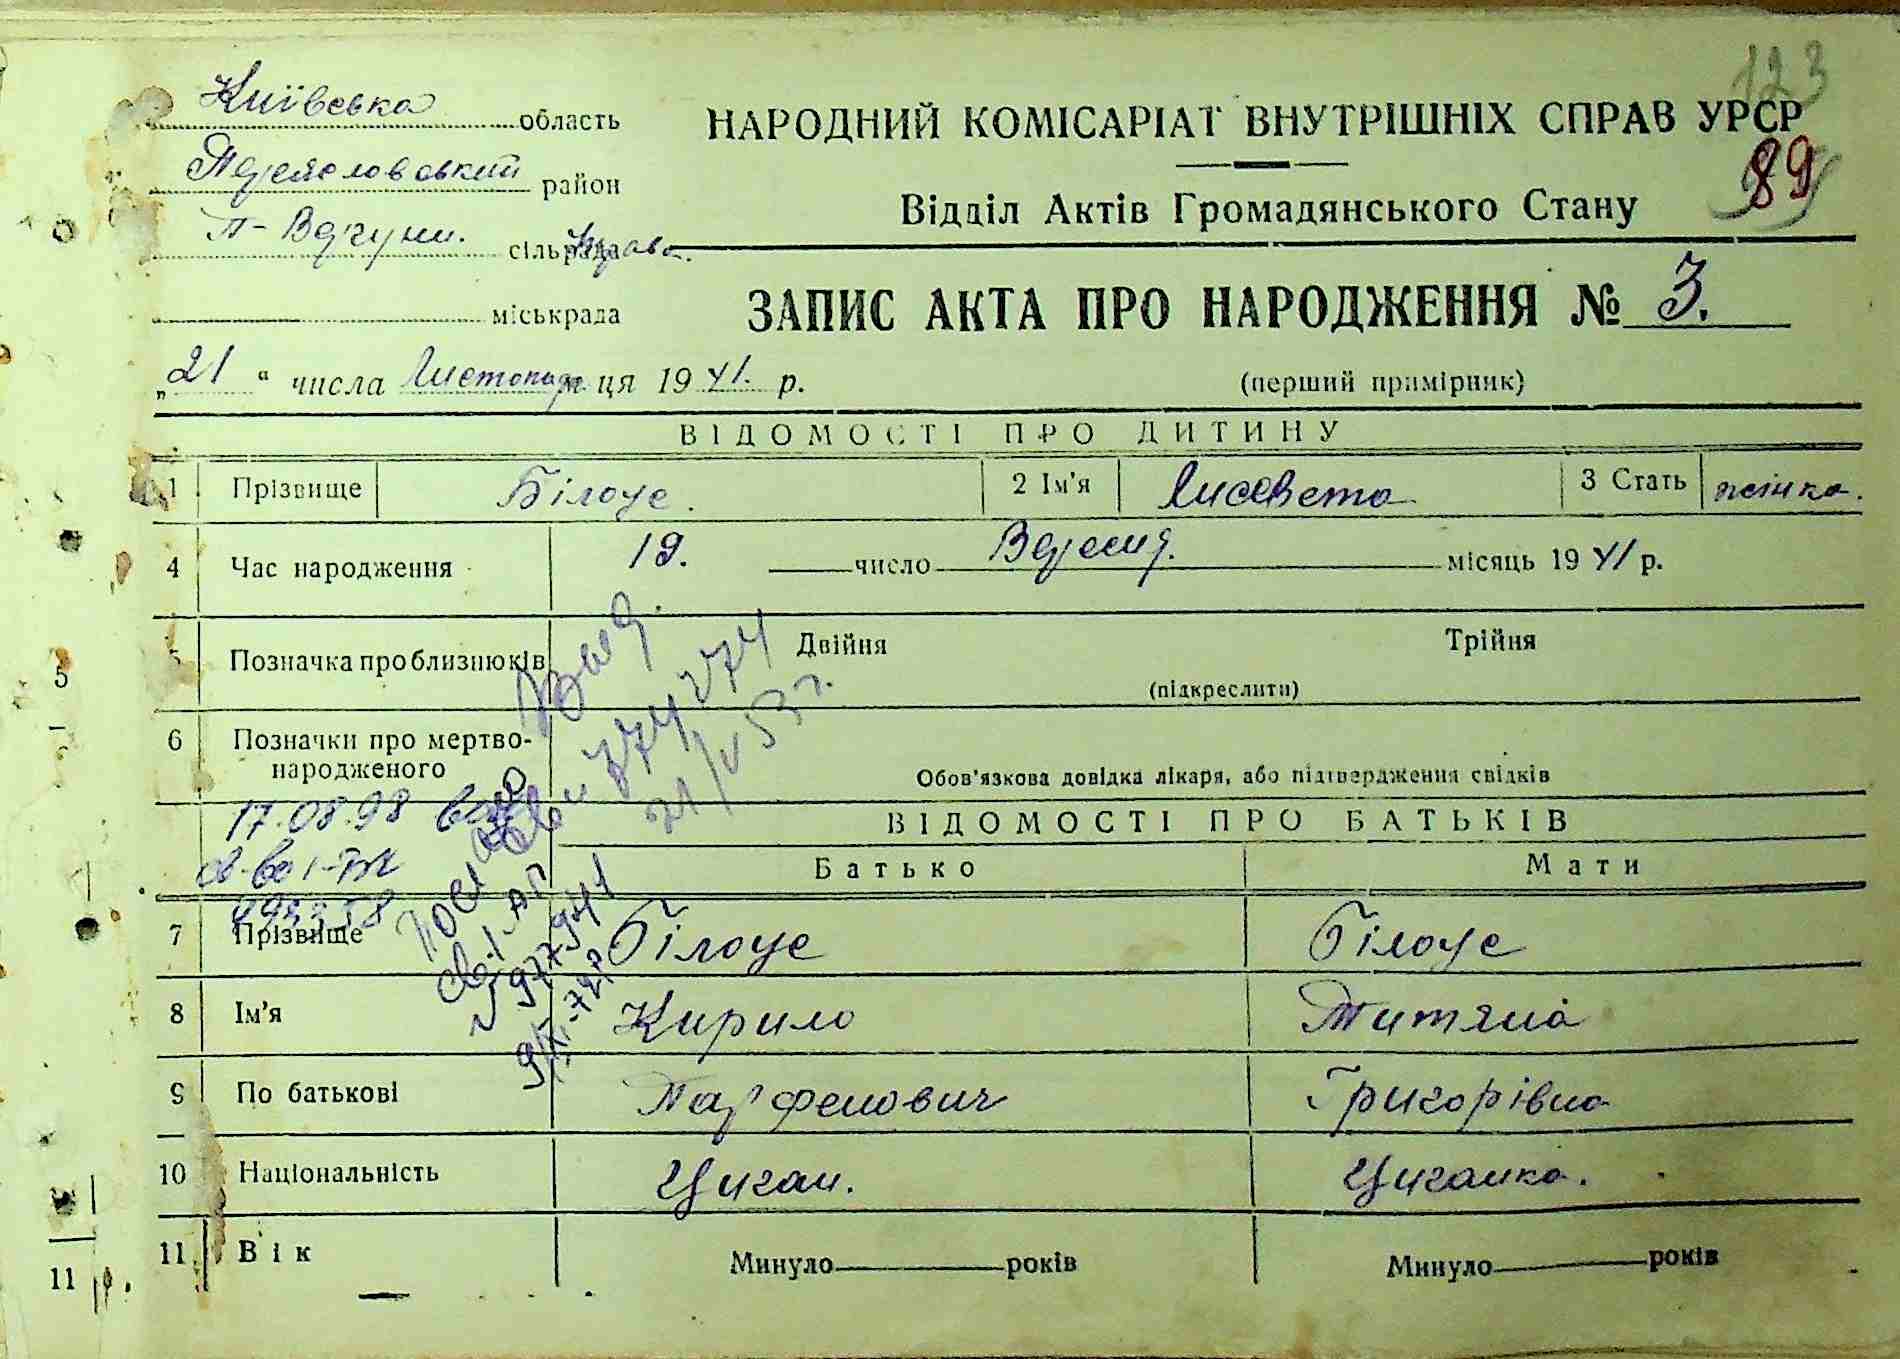 123
Київська область
НАРОДНИЙ КОМІСАРІАТ ВНУТРІШНІХ СПРАВ УРСР
89
Переяславський район
Відділ Актів Громадянського Стану
П- Вергуни. сільрада
міськрада
ЗАПИС АКТА ПРО НАРОДЖЕННЯ № 3.
„21“ числа Листопада м ця 1941. р.
(перший примірник)
ВІДОМОСТІ ПРО ДИТИНУ
1 Прізвище Білоус. 2 Ім'я Лисавета 3 Стать жінка.
4 Час народження 19. число Вересня. місяць 1941 р.
5 Позначка про близнюків Двійня Трійня
(підкреслити)
5
6 Позначки про мертво-
народженого
Обов'язкова довідка лікаря, або підтвердження свідків
774274
21/V 53 г.
17.08.98
ВІДОМОСТІ ПРО БАТЬКІВ
Батько Мати
977941
9/XI-72р
7 Прізвище Білоус Білоус
8 Ім'я Кирило Титяна
9 По батькові Парфенович Григорівна
10 Національність Циган. Циганка.
11 Вік Минуло років Минуло років
11